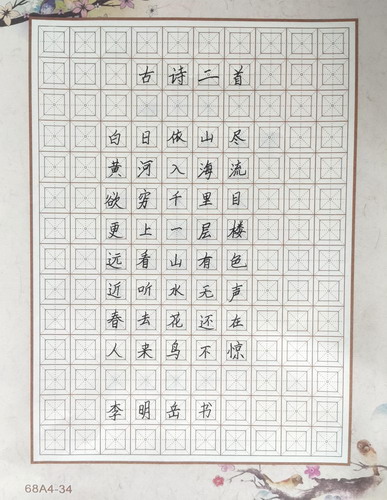 古诗二首
白日依山尽
黄河入海流
欲穷千里目
更上一层楼
远看山有色
近听水无声
春去花还在
人来鸟不惊
李明岳书
68A4-34